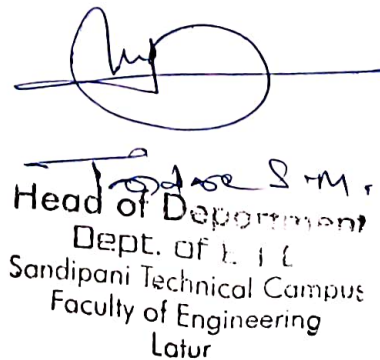 S.M.
Head of Department
Dept. of
Sandipani Technical Campus
Faculty of Engineering
Latur